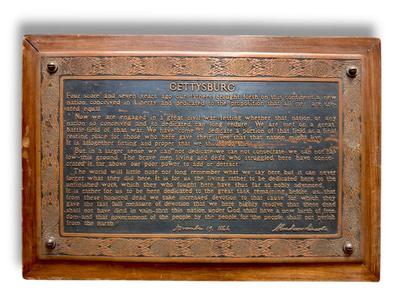 GETTYSBURG
Four score and seven years ago our fathers brought forth on this continent a new
nation, conceived in Liberty and dedicated to the proposition that all men are cre
ated equal
Now we are engaged in a great civil war, testing whether that nation, or any
nation so conceived and so dedicated can long endure. We are met on a great
battle-field of that war. We have come to dedicate a portion of that field as a final
resting place for those who here gave their lives that that nation might live
It is altogether fitting and proper that we should
But in a larger sense we can not dedicate-we can not consecrate-we can not hal
low-this ground. The brave men living and dead who struggled here have conse
crated it far above our poor power to add or detract
The world will little note nor long remember what we say here but it can never
forget what they did here. It is for us the living rather to be dedicated here to the
unfinished work which they who fought here have thus far so nobly advanced
It is rather for us to be here dedicated to the great task remaining before us-that
from these honored dead we take increased devotion to that cause for which they
gave the last full measure of devotion that we here highly resolve that these dead
shall not have died in vain-that this nation under God shall have a new birth of free
dom-and that government of the people by the people for the people shall not perish
from the earth
November 19, 1863. Abraham Lincoln